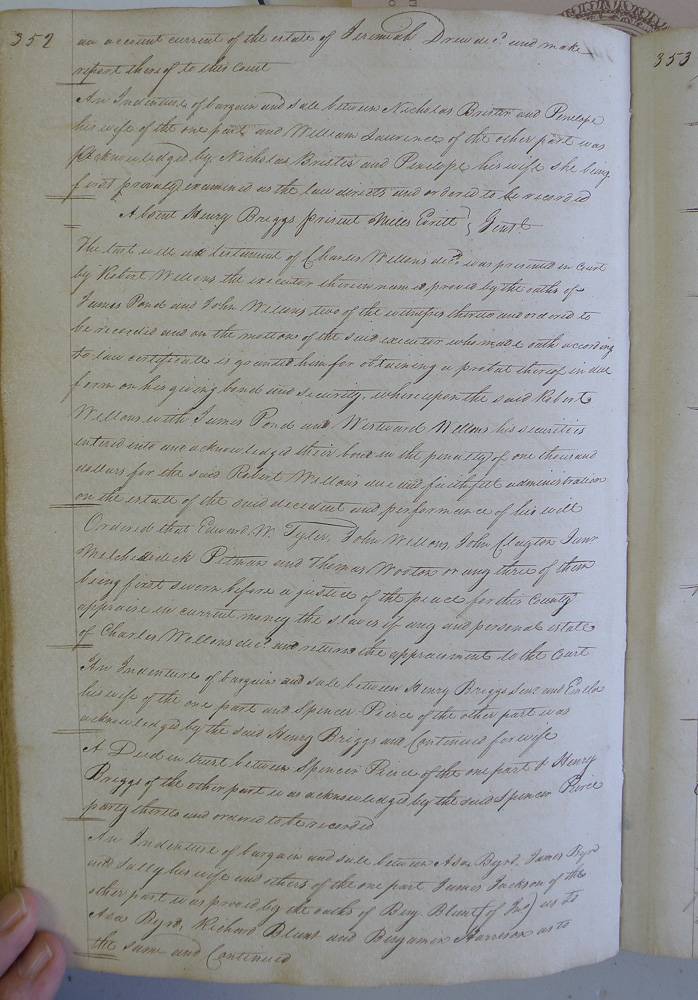 352
an account current of the estate of Jeremiah Drew decd and make
report thereof to this Court
An Indenture of bargain and sale between Nicholas Brister and Penelope
his wife of the one part and William Laurence of the other part was
acknowledged by Nicholas Brister and Penelope his wife she being
first privaly examined as the law directs and ordered to be recorded
Absent Henry Briggs present Miles Gent.
The last will and testament of Charles Wellons decd. was presented in Court
by Robert Wellons the executor therein named proved by the oaths of
James Pond and John Wellons two of the witnesses thereto and ordered to
be recorded and on the motion of the said executor who made oath according
to law certificate is granted him for obtaining a probat thereof in due
form on his giving bond and security, whereupon the said Robert
Wellons with James Pond and Westward Wellons his securities
entered into and acknowledged their bond in the penalty of one thousand
dollars for the said Robert Wellons due and faithfull administration
on the estate of the said decedent and performance of his will
Ordered that Edward W. Tyler, John Wellons, John Clayton Junr
Melchedeck Pitman and Thomas Wooton or any three of them
being first sworn before a justice of the peace for this County
appraise in current money the slaves if any and personal estate
of Charles Wellons decd. and return the appraisment to the Court
An Indenture of bargain and sale between Henry Briggs Senr and
his wife of the one part and Spencer Peirce of the other part was
acknowledged by the said Henry Briggs and Continued for wife
A Deed in trust between Spencer Peirce of the one part & Henry
Briggs of the other part was acknowledged by the said Spencer Peirce
party thereto and ordered to be recorded
An Indenture of bargain and sale between Asa Byrd, James Byrd
and Sally his wife and others of the one part James Jackson of the
other part was proved by the oaths of Benj. Blunt (of Jno) as to
Asa Byrd, Richard Blunt and Benjamin Harrison as to
the same and Continued
353